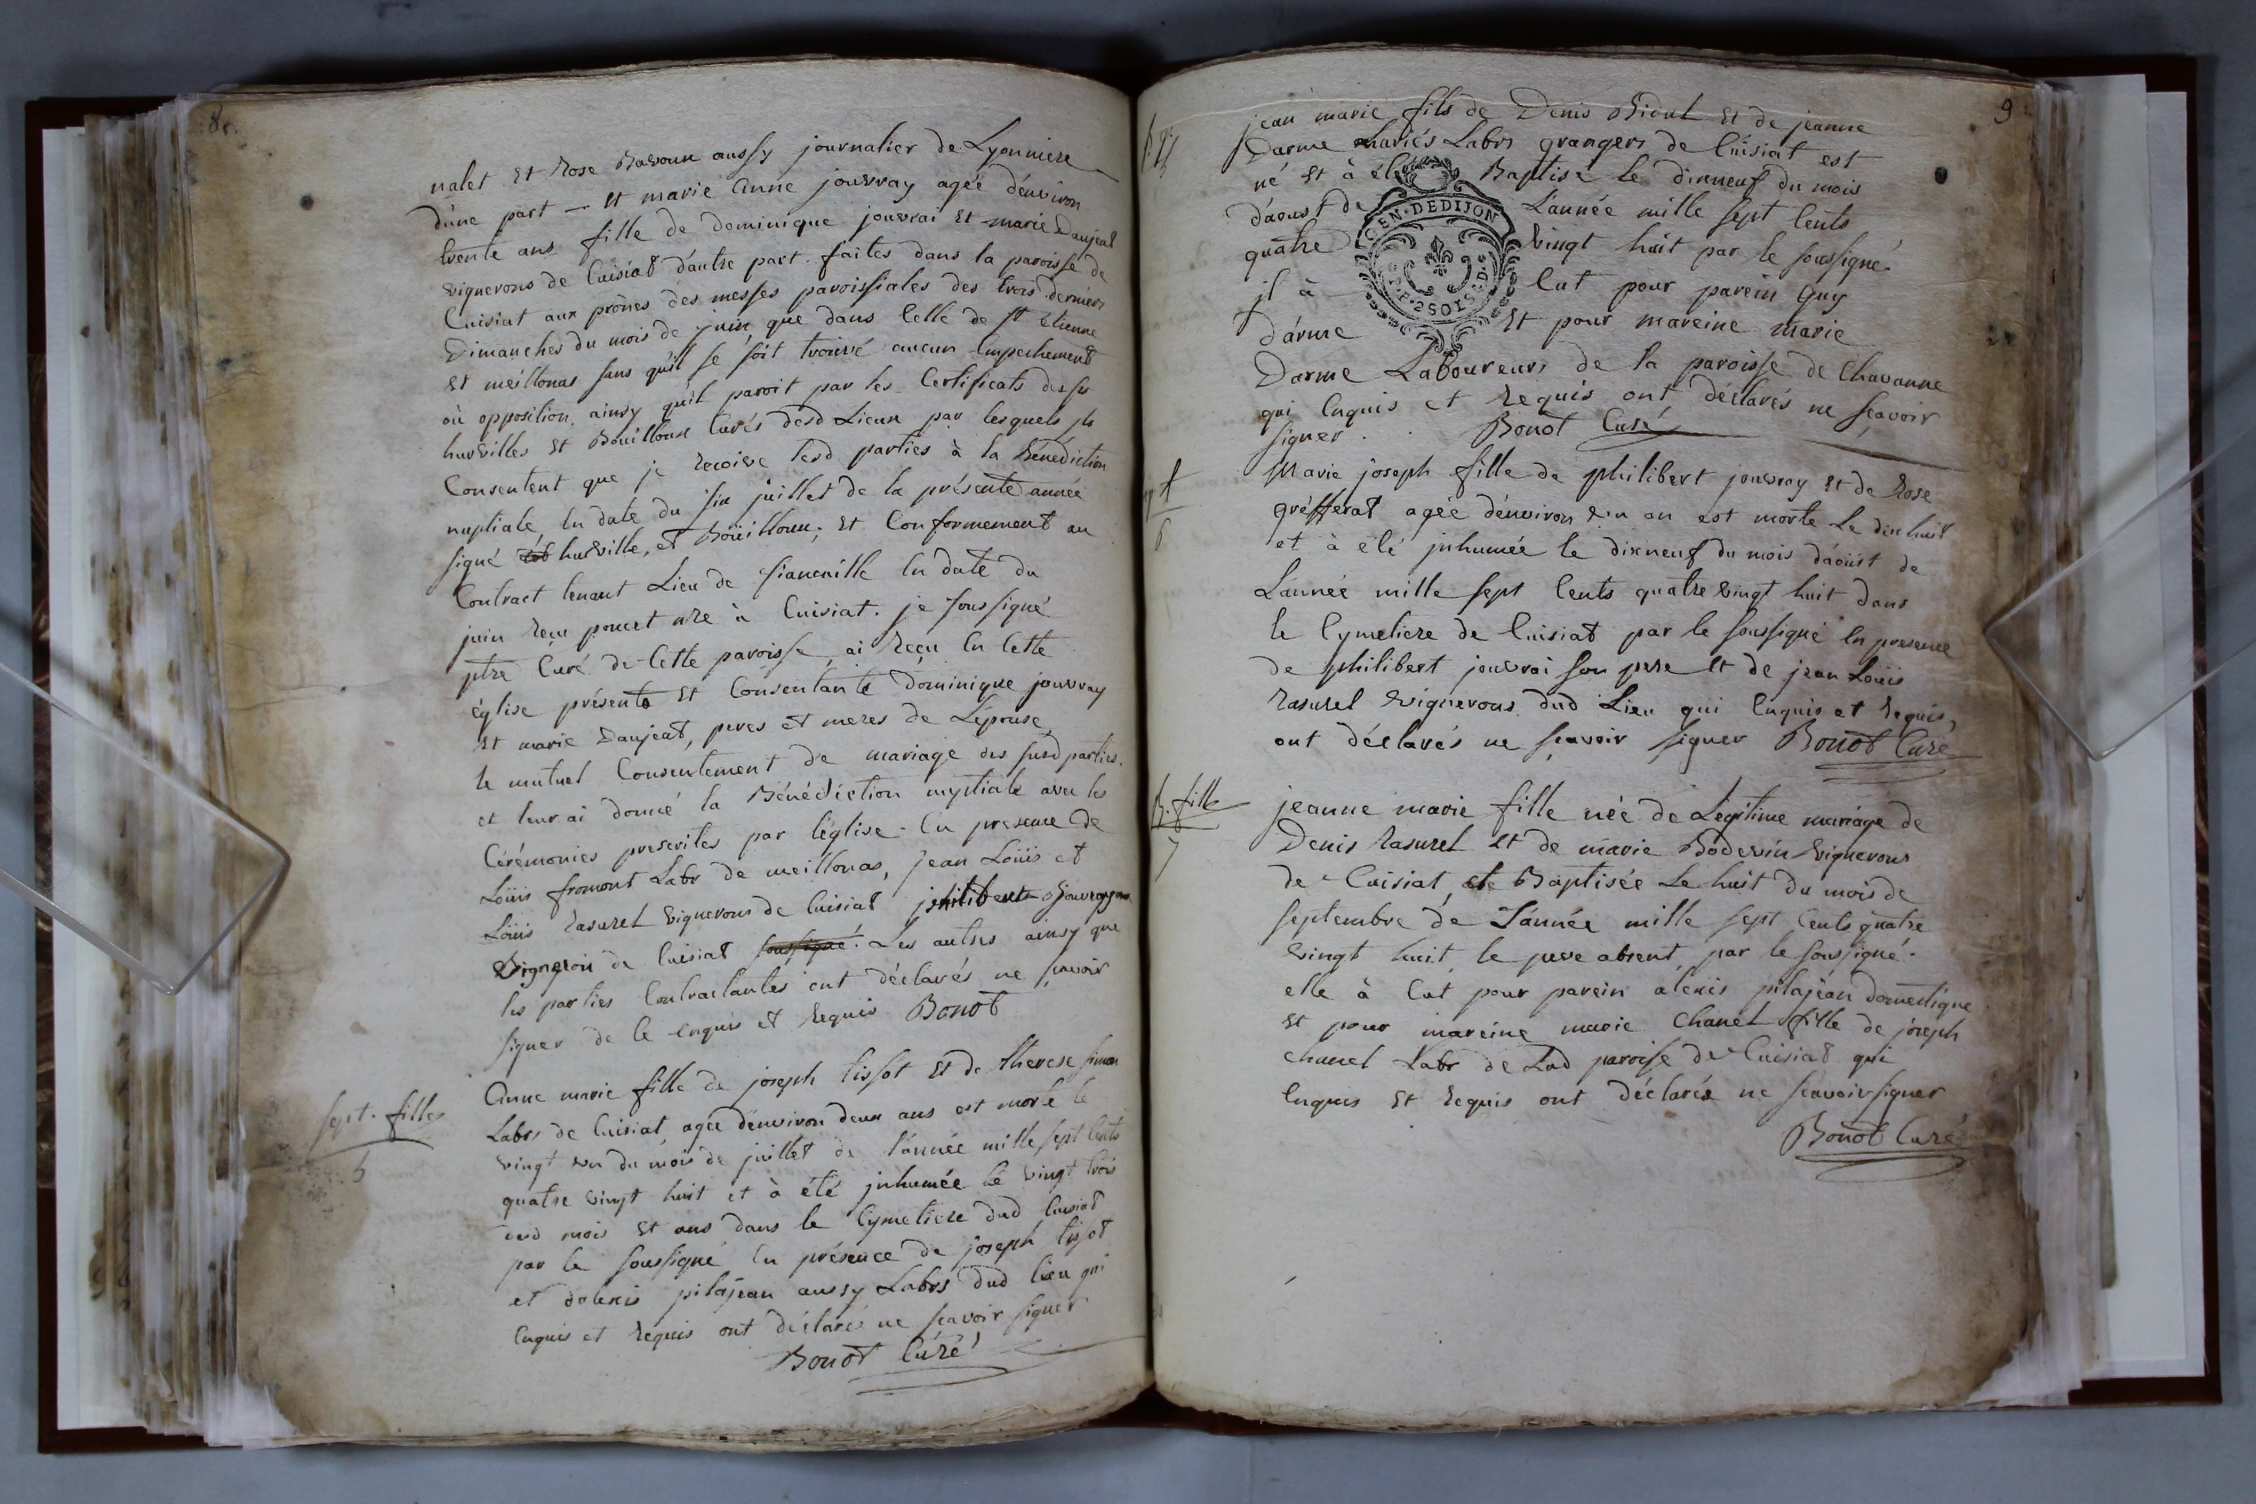 8
nalet Et Rose Ravoux aussy journalier de Lyonniere
d'une part — et marie Anne jouvray agée d'environ
trente ans fille de dominique jouvrai Et marie Daujeat
vignerons de Cuisiat d'autre part. faites dans la paroisse de
Cuisiat aux prônes des messes paroissiales des trois derniers
Dimanches du mois de juin que dans Celle de st Etienne
Et meillonas sans qu'il se soit trouvé aucun Empechement
où opposition, ainsy qu'il paroit par les Certificats des srs
hurvilles Et Bouilloux Curés desd Lieux par lesquels jls
Consentent que je Recoive lesd parties à la Bénédiction
nuptiale, En date du six juillet de la présente année
signé hurville, et Boüilloux; Et Conformement au
Contract tenant Lieu de fiancaille En date du
juin Reçu poncet nre à Cuisiat. je soussigné
ptre Curé de Cette paroisse ai Reçu En Cette
église présents Et Consentants Dominique jouvray
Et marie Daujeat, peres et meres de L'épouse,
le mutuel Consentement de mariage des susd parties.
et leur ai donné la Bénédiction nuptiale avec les
Cérémonies prescrites par l'église. En presence de
Loüis fromont Labr de meillonas, jean Loüis et
Loüis Rasurel vignerons de Cuisiat philibert jouvray
vigneron de Cuisiat soussigné. Les autres ainsy que
les parties Contractantes ont déclarés ne scavoir
signer de Ce enquis et Requis Bonot
sept. fille
5
Anne marie fille de joseph tissot Et de therese simon
Labrs de Cuisiat, agée d'environ deux ans est morte le
vingt un du mois de juillet de l'année mille sept Cents
quatre vingt huit et à été jnhumée le vingt trois
desd mois Et ans dans le Cymetiere dud Cuisiat
par le soussigné En présence de joseph tissot
et d'alexis pilajean aussy Labrs dud lieu qui
Enquis et Requis ont déclarés ne scavoir signer
Bonot Curé
9
jean marie fils de Denis Bidul Et de jeanne
Darme Mariés Labrs grangers de Cuisiat est
né Et à été Baptisé Le dixneuf du mois
d'aoust de L'année mille sept Cents
quatre vingt huit par le soussigné.
jl à Eut pour parein Guy
d'arme Et pour mareine marie
Darme Laboureurs de la paroisse de Chavanne
qui Enquis et Requis ont déclarés ne scavoir
signer. Bonot Curé
GEN. DE DIJON
2 SOLS 8 D.
spt
6
Marie joseph fille de philibert jouvray Et de Rose
grefferat agée d'environ un an est morte Le dix huit
et à été jnhumée le dixneuf du mois d'aoüst de
L'année mille sept Cents quatre vingt huit dans
le Cymetiere de Cuisiat par le soussigné En presence
de philibert jouvrai son pere Et de jean Loüis
Rasurel vignerons dud Lieu qui Enquis et Requis,
ont déclarés ne scavoir signer Bonot Curé
B. fille
7
jeanne marie fille née de Légitime mariage de
Denis Rasurel Et de marie Bodevin vignerons
de Cuisiat, ete Baptisée Le huit du mois de
septembre de L'année mille sept Cents quatre
vingt huit, le pere absent, par le soussigné.
elle à Eut pour parein alexis pilajean domestique
Et pour mareine marie Chanel fille de joseph
chanel Labr de Lad paroisse de Cuisiat qui
Enquis Et Requis ont déclarés ne scavoir signer
Bonot Curé